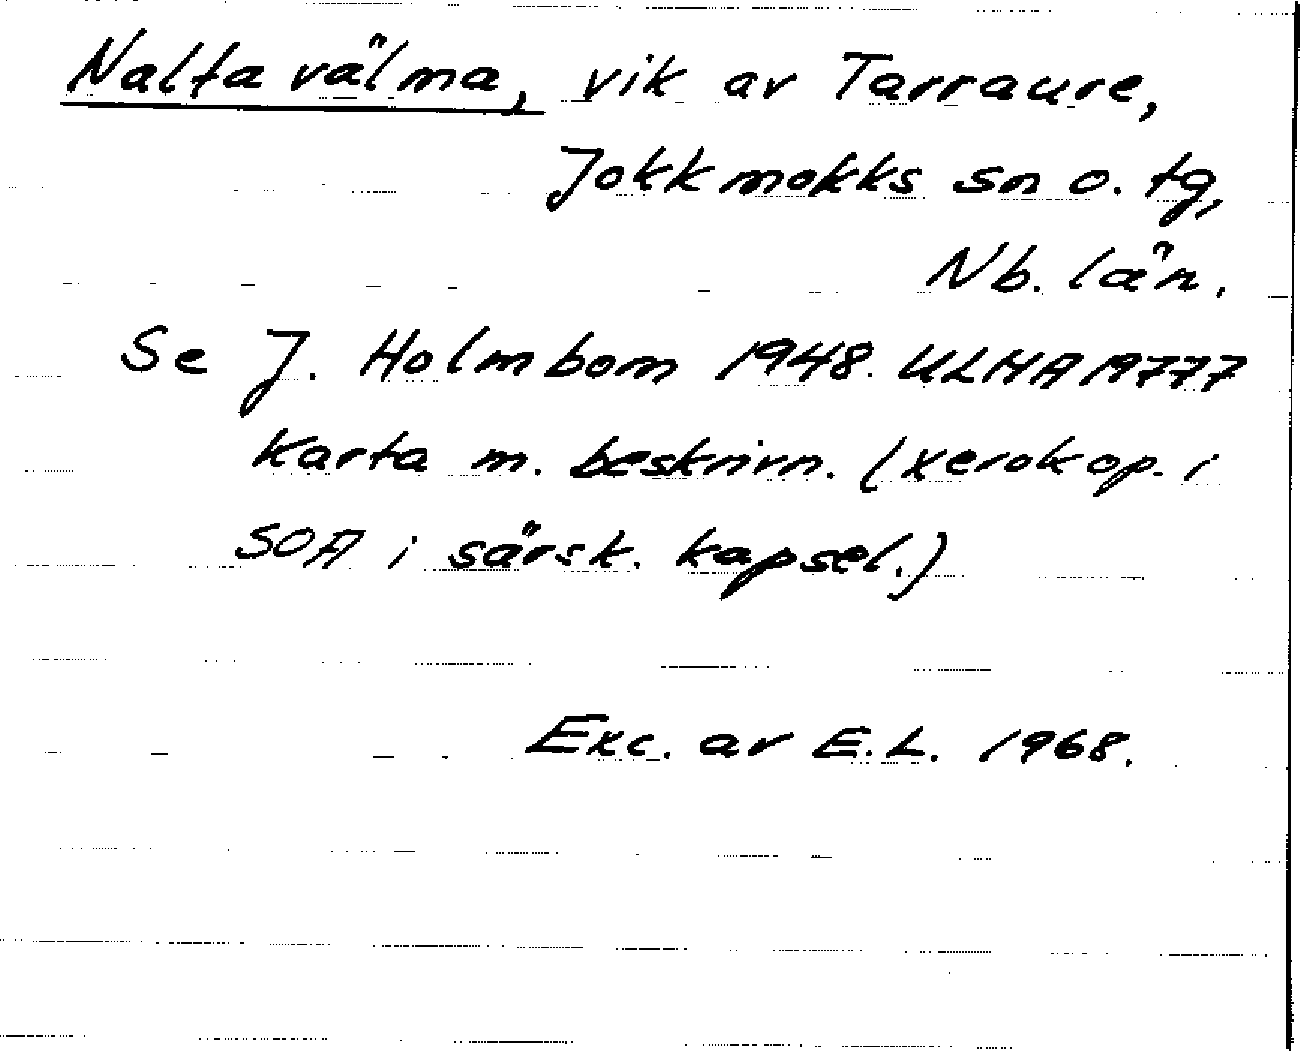 Nalta välma, vik av Tarraure,
Jokkmokks sn o. tg,
Nb. län.
Se J. Holmbom 1948. ULMA 19777
Karta m. beskrivn. (xerokop. i
SOA i särsk. kapsel.)
Exc. av E.L. 1968.